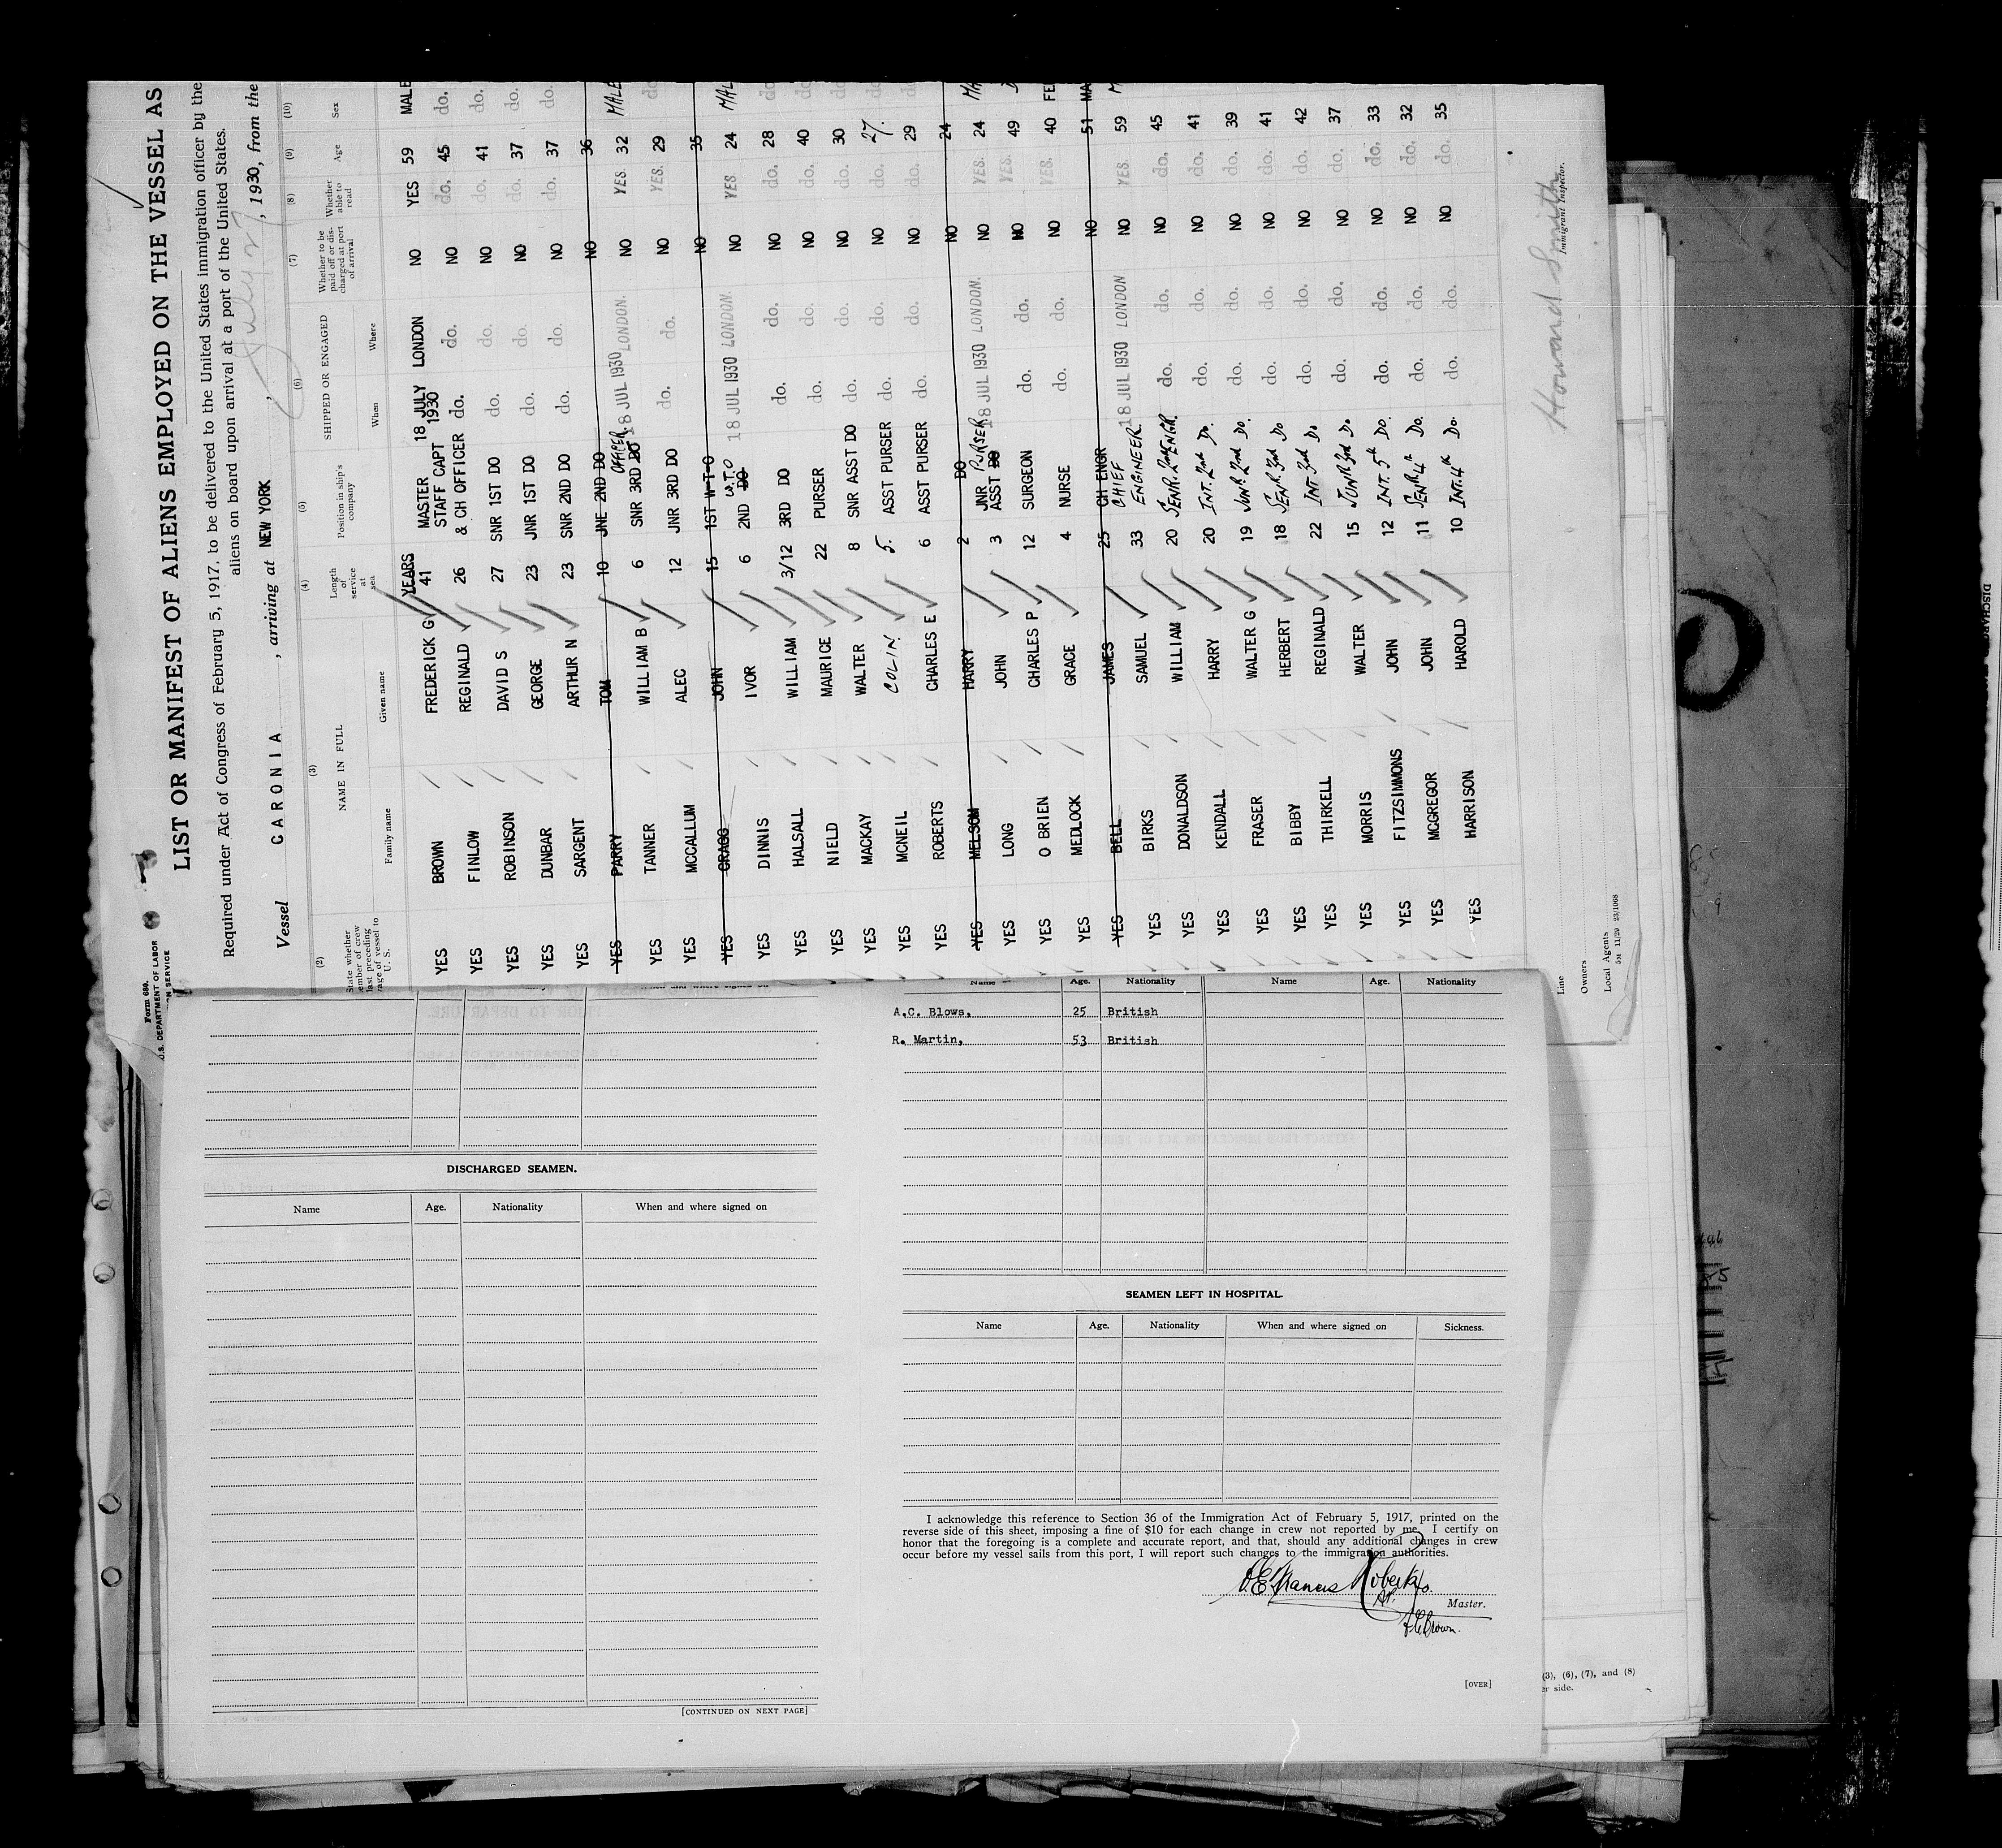 Form 680
U.S. DEPARTMENT OF LABOR
LIST OR MANIFEST OF ALIENS EMPLOYED ON THE VESSEL AS
Required under Act of Congress of February 5, 1917, to be delivered to the United States immigration officer by the
aliens on board upon arrival at a port of the United States.
Vessel CARONIA, arriving at NEW YORK, July 27, 1930, from the
(2) (3) (4) (5) (6) (7) (8) (9) (10)
NAME IN FULL SHIPPED OR ENGAGED
Family name Given name Length of service at sea Position in ship's company When Where Whether to be paid off or discharged at port of arrival Whether able to read Age Sex
YES BROWN FREDERICK G YEARS 41 MASTER 18 JULY 1930 LONDON NO YES 59 MALE
YES FINLOW REGINALD 26 STAFF CAPT & CH OFFICER do. do. NO do. 45 do.
YES ROBINSON DAVID S 27 SNR 1ST DO do. do. NO do. 41 do.
YES DUNBAR GEORGE 23 JNR 1ST DO do. do. NO do. 37 do.
YES SARGENT ARTHUR N 23 SNR 2ND DO do. do. NO do. 37 do.
YES PARRY TOM 10 JNE 2ND DO NO 36
YES TANNER WILLIAM B 6 SNR 3RD DO OFFICER 18 JUL 1930 LONDON. NO YES. 32 MALE
YES MCCALLUM ALEC 12 JNR 3RD DO do. do. NO YES. 29 do
YES CRAGG JOHN 15 1ST W-T-O NO 35
YES DINNIS IVOR 6 2ND DO W.T.O 18 JUL 1930 LONDON. NO YES 24 MAL
YES HALSALL WILLIAM 3/12 3RD DO do. do. NO do. 28 do
YES NIELD MAURICE 22 PURSER do. do. NO do. 40 do
YES MACKAY WALTER 8 SNR ASST DO do. do. NO do. 30 do
YES MCNEIL COLIN. 5. ASST PURSER do. do. NO do. 27. do
YES ROBERTS CHARLES E 6 ASST PURSER do. do. NO do. 29 do
YES MELSOM HARRY 2 DO NO 24
YES LONG JOHN 3 JNR ASST DO PURSER 18 JUL 1930 LONDON. NO YES. 24 MA
YES O BRIEN CHARLES P 12 SURGEON do. do. NO YES. 49
YES MEDLOCK GRACE 4 NURSE do. do. NO YES. 40 FE
YES BELL JAMES 25 CH ENGR NO 51 MA
YES BIRKS SAMUEL 33 CHIEF ENGINEER. 18 JUL 1930 LONDON NO YES. 59 M
YES DONALDSON WILLIAM 20 SENR. 2nd ENGR. do. do. NO do. 45
YES KENDALL HARRY 20 INT. 2nd Do. do. do. NO do. 41
YES FRASER WALTER G 19 JUNR. 2nd Do. do. do. NO do. 39
YES BIBBY HERBERT 18 SENR. 3rd Do do. do. NO do. 41
YES THIRKELL REGINALD 22 INT. 3rd Do do. do. NO do. 42
YES MORRIS WALTER 15 JUNR 3rd Do do. do. NO do. 37
YES FITZSIMMONS JOHN 12 INT. 5th Do. do. do. NO do. 33
YES MCGREGOR JOHN 11 SENR 4th Do. do. do. NO do. 32
YES HARRISON HAROLD 10 INT. 4th Do. do. do. NO do. 35
Line
Owners
Local Agents
5M 11/29 23/1068
Howard Smith
Immigrant Inspector.
DISCHARGED SEAMEN.
Name Age. Nationality When and where signed on
[CONTINUED ON NEXT PAGE]
Name Age. Nationality Name Age. Nationality
A.C. Blows, 25 British
R. Martin, 53 British
SEAMEN LEFT IN HOSPITAL.
Name Age. Nationality When and where signed on Sickness.
I acknowledge this reference to Section 36 of the Immigration Act of February 5, 1917, printed on the
reverse side of this sheet, imposing a fine of $10 for each change in crew not reported by me. I certify on
honor that the foregoing is a complete and accurate report, and that, should any additional changes in crew
occur before my vessel sails from this port, I will report such changes to the immigration authorities.
Francis Roberts
Master.
Brown.
[OVER]
(3), (6), (7), and (8)
er side.